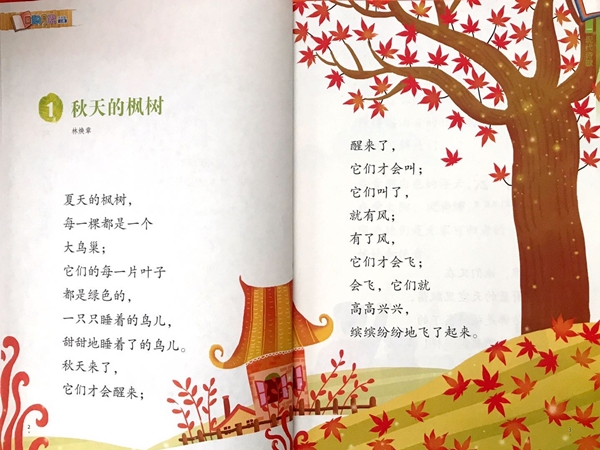 1 秋天的枫树
林焕章
夏天的枫树，
每一棵都是一个
大鸟巢；
它们的每一片叶子
都是绿色的，
一只只睡着的鸟儿，
甜甜地睡着了的鸟儿。
秋天来了，
它们才会醒来；
2
醒来了，
它们才会叫；
它们叫了，
就有风；
有了风，
它们才会飞；
会飞，它们就
高高兴兴，
缤缤纷纷地飞了起来。